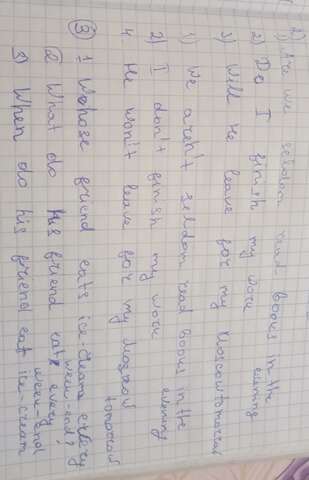 2) 1) Are we seldom read books in the
evening
2) Do I finish my work
3) Will he leave for my Moscow tomorrow
1) We aren't seldom read books in the
evening
2) I don't finish my work
4. He won't leave for my Moscow
tomorrow
③ 1 Whose friend eats ice-cream every
week-end?
② What do his friend eat every
week-end
3) When do his friend eat ice-cream